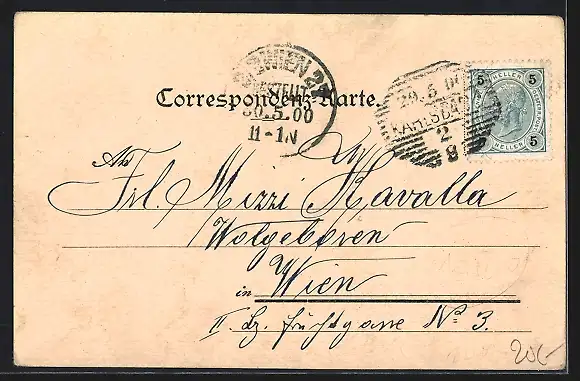 WIEN
BESTELLT
30.5.00
11-1N
29.5.00
KARLSBAD
2
8
5 HELLER 5
HELLER 5
Correspondenz-Karte.
An
Frl. Mizzi Kavalla
Wolgeboren
in Wien
II. Bz. No. 3.
20,-